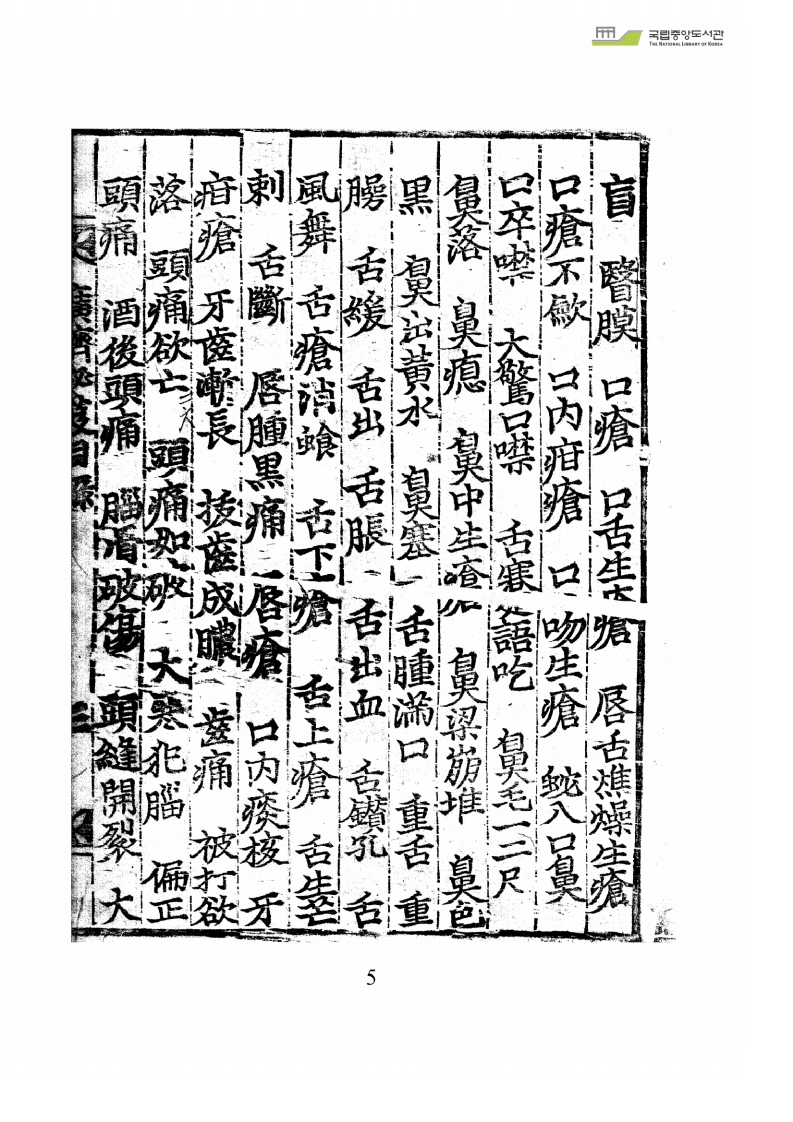 국립중앙도서관
THE NATIONAL LIBRARY OF KOREA
盲 瞖膜 口瘡 口舌生瘡 唇舌燋燥生瘡
口瘡不歛 口內疳瘡 口吻生瘡 蛇入口鼻
口卒噤 大驚口噤 舌語吃 鼻毛一二尺
鼻落 鼻瘜 鼻中生瘡 鼻梁崩堆 鼻色
黑 鼻出黃水 鼻塞 舌腫滿口 重舌 重
腭 舌緩 舌出 舌脹 舌出血 舌鑚孔 舌
風舞 舌瘡消蝕 舌下瘡 舌上瘡 舌生芒
刺 舌斷 唇腫黑痛 唇瘡 口內痰核 牙
疳瘡 牙齒漸長 拔齒成膿 齒痛 被打欲
落 頭痛欲亡 頭痛如破 大寒犯腦 偏正
頭痛 酒後頭痛 腦骨破傷 頭縫開裂 大
廣濟秘笈目錄 三
5